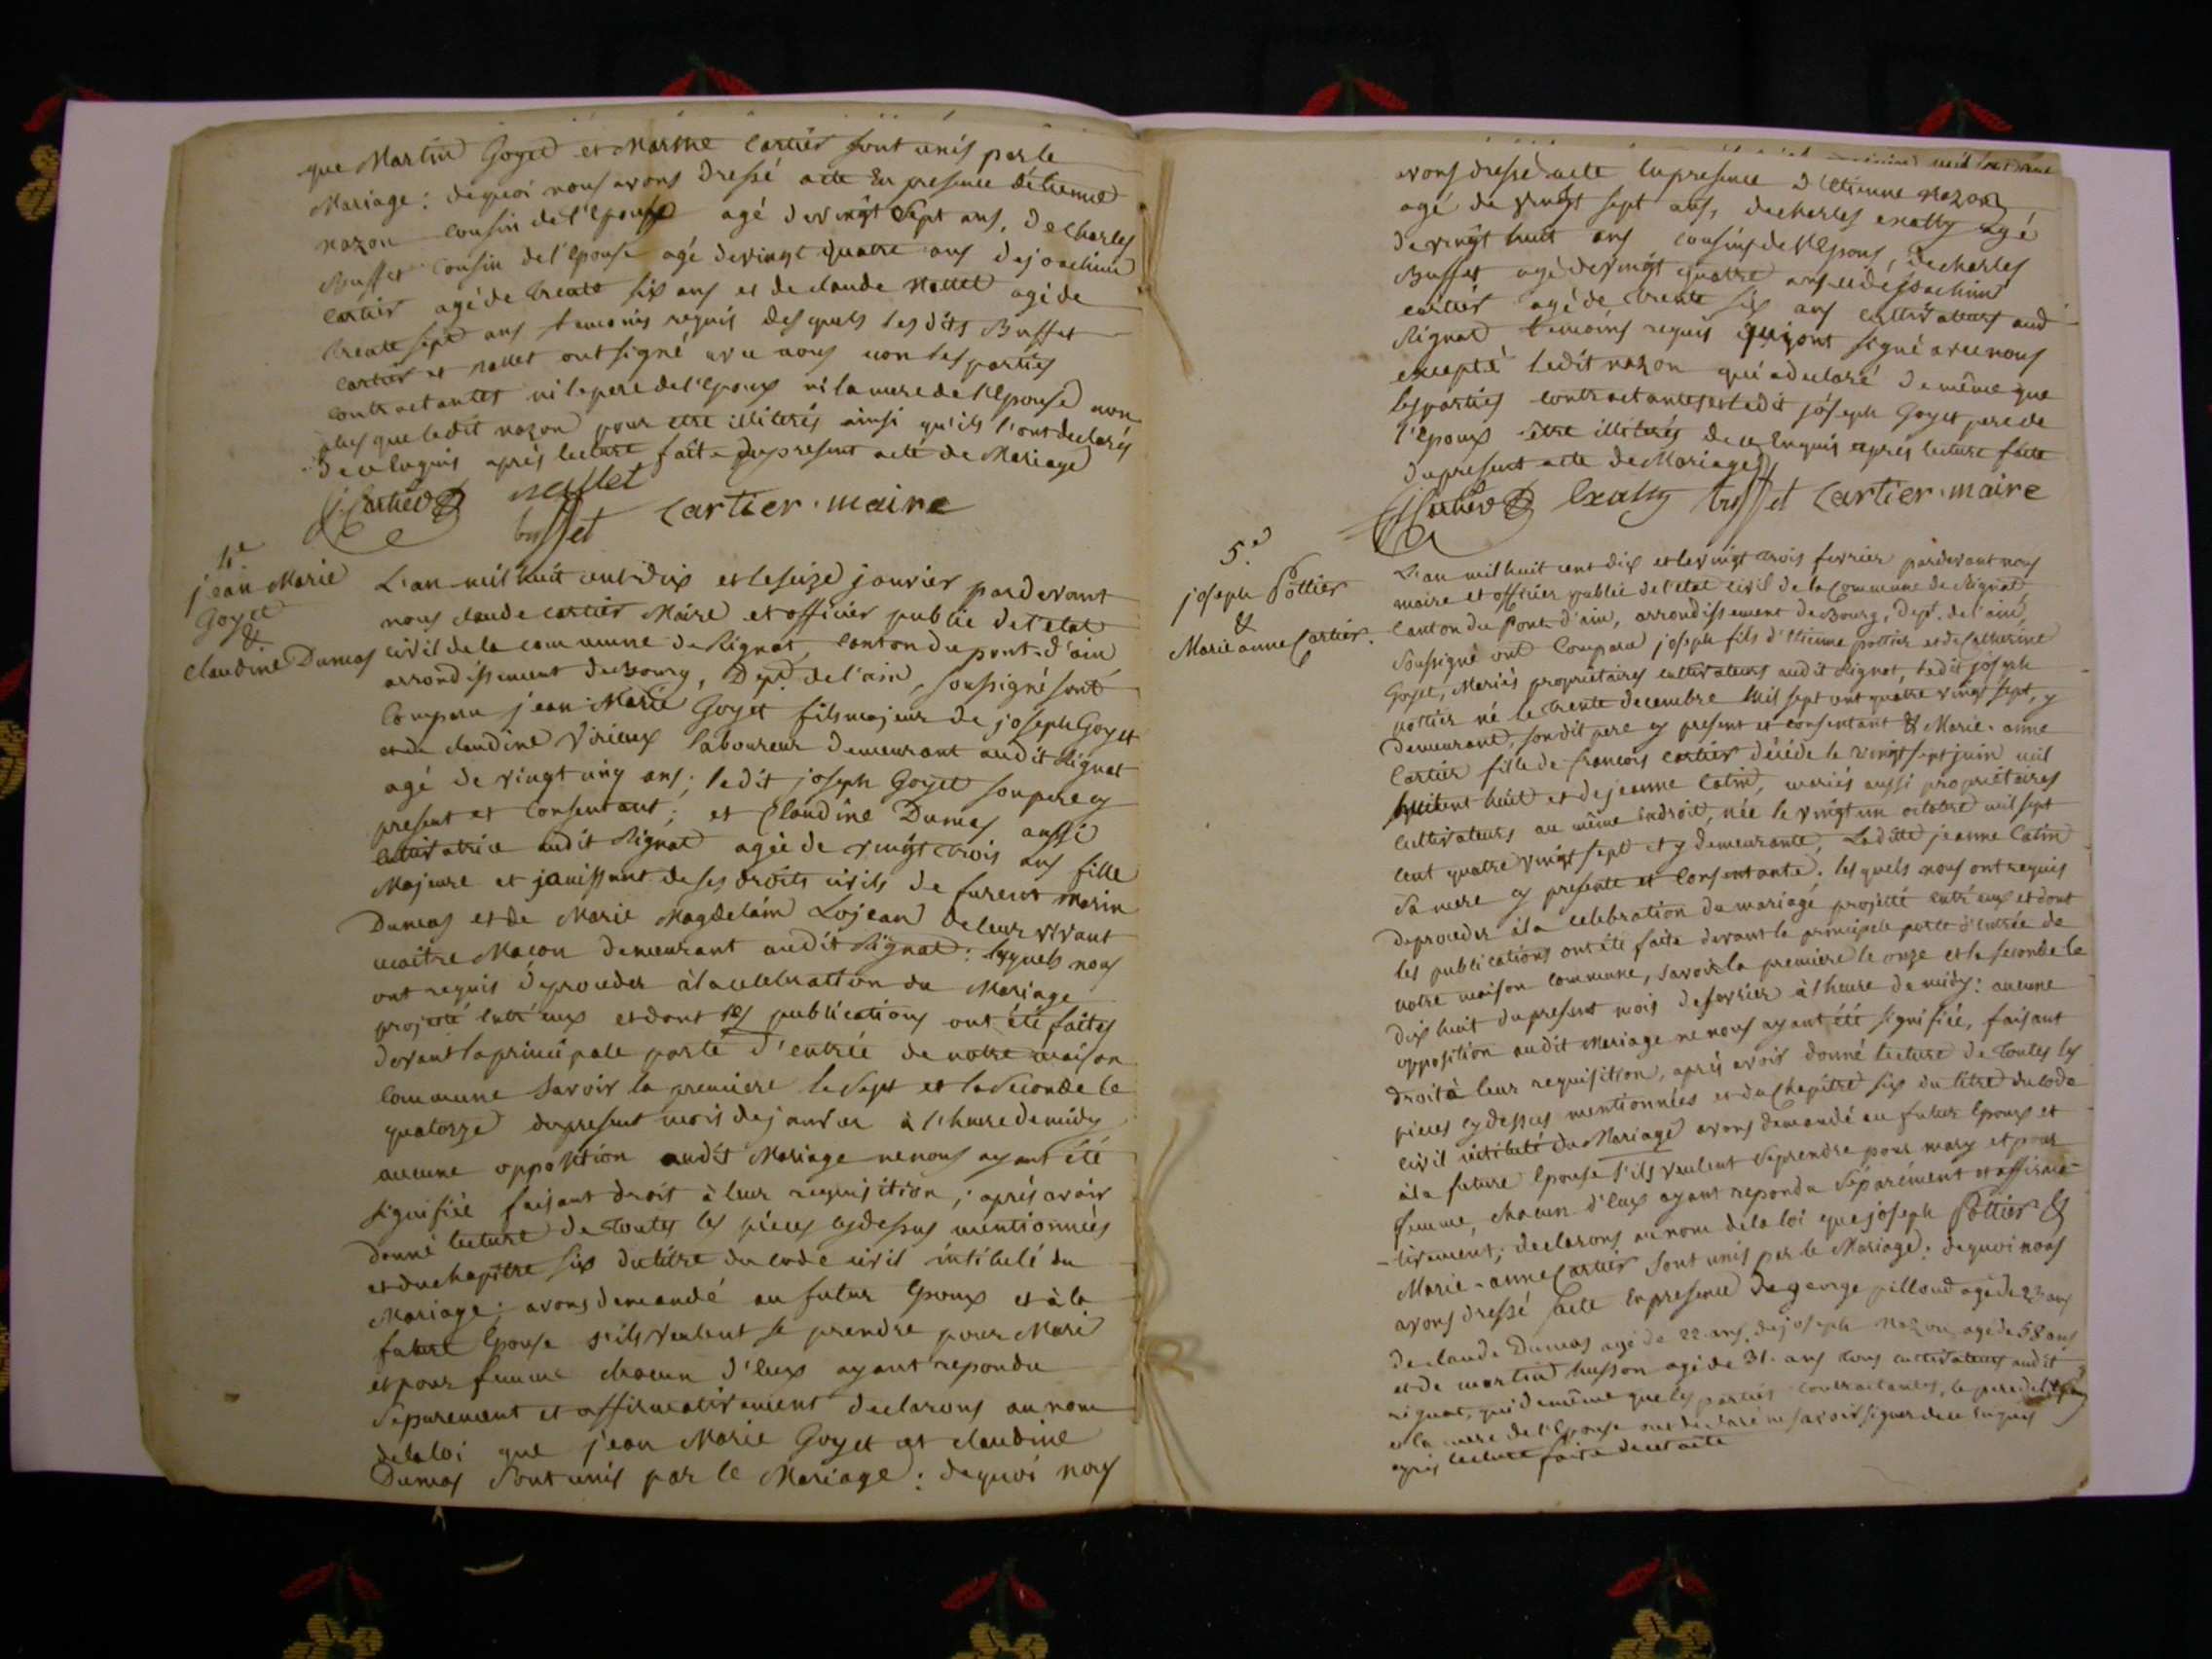 que Martin Goyet et Marine Cartier sont unis par le
Mariage: dequoi nous avons dressé acte En presence d'étienne
nazon cousin de l'Epouse agé de vingt Sept ans, de charles
Buffet cousin de l'Epouse agé de vingt quatre ans de joachim
Cartier agé de trente six ans et de claude nallet agé de
trente sept ans temoins requis des quels les dits Buffet
Cartier et nallet ont signé avec nous non les parties
contractantes ni le pere de l'Epoux ni la mere de l'Epouse non
plus que ledit nazon pour etre illiterés ainsi qu'ils l'ont declarés
de ce Enquis après lecture faite du present acte de Mariage
J. Cartier nallet
buffet Cartier maire
4e
jean Marie
Goyet
&
claudine Dumas
L'an mil huit cent dix et le seize janvier pardevant
nous claude cartier Maire et officier public de l'etat
civil de la commune de Rignat, canton du pont-d'ain
arrondissement de Bourg, Dept. de l'ain, soussigné sont
Comparu jean Marie Goyet fils majeur de joseph Goyet
et de claudine Virieux laboureur demeurant audit Rignat
agé de vingt un ans; ledit joseph Goyet son pere cy
present et Consentant; et Claudine Dumas aussi
cultivatrice audit Rignat agée de vingt trois ans fille
Majeure et jouissant de ses droits civils de furent marin
Dumas et de Marie Magdelain Lojean de leur vivant
maitre Maçon demeurant audit Rignat: lesquels nous
ont requis de proceder à la celebration du Mariage
projetté entr'eux et dont les publications ont été faites
devant la principale porte d'entrée de notre maison
Commune Savoir la premiere le Sept et la Seconde le
quatorze du present mois de janvier à l'heure de midy
aucune opposition audit Mariage ne nous ayant été
signifiée faisant droit à leur requisition; après avoir
donné lecture de toutes les pièces cy dessus mentionnées
et du chapitre six du titre du code civil intitulé du
Mariage; avons demandé au futur Epoux et à la
future Epouse s'ils veulent se prendre pour Mari
et pour femme chacun d'eux ayant repondu
Separement et affirmativement declarons au nom
de la loi que jean Marie Goyet et claudine
Dumas Sont unis par le Mariage: dequoi nous
avons dressé acte En presence d'Etienne nazon
agé de vingt sept ans, de charles exally agé
de vingt huit ans cousins de l'Epoux, de charles
Buffet agé de vingt quatre ans et de joachim
cartier agé de trente six ans cultivateurs aud
Rignat temoins requis qui ont signé avec nous
excepté ledit nazon qui a declaré de même que
les parties contractantes et ledit jóseph Goyet pere de
l'Epoux être illiterés de ce Enquis après lecture faite
du present acte de Mariage
J. Cartier Exally buffet Cartier maire
5.e
joseph Pottier
&
Marie anne Cartier.
L'an mil huit cent dix et le vingt trois fevrier pardevant nous
maire et officier public de l'etat civil de la Commune de Rignat,
Canton du Pont-d'ain, arrondissement de Bourg, Dept. de l'ain,
Soussigné ont Comparu joseph fils d'Etienne pottier et de Catherine
Goyet, Mariés propriétaires cultivateurs audit Rignat, ledit jóseph
pottier né le trente decembre Mil sept cent quatre vingt sept, y
demeurant, sondit pere cy present et consentant & Marie-anne
Cartier fille de francois cartier décédé le vingt sept juin mil
huit cent huit et de jeanne Catin, mariés aussi propriétaires
Cultivateurs au même Endroit, née le vingt un octobre mil sept
cent quatre vingt sept et y demeurante, Ladite jeanne Catin
Sa mere cy presente et Consentante. les quels nous ont requis
de proceder à la celebration du mariage projetté entr'eux et dont
les publications ont été faite devant la principale porte d'entrée de
notre maison commune, savoir la premiere le onze et la seconde le
dix huit du present mois de fevrier à l'heure de midy: aucune
opposition audit Mariage ne nous ayant été signifiée, faisant
droit à leur requisition, après avoir donné lecture de toutes les
pieces cy dessus mentionnées et du chapitre six du titre du code
civil intitulé du Mariage avons demandé au futur Epoux et
à la future Epouse s'ils veulent se prendre pour mary et pour
femme, chacun d'eux ayant repondu Séparément et affirma-
-tivement; declarons au nom de la loi que joseph Pottier &
Marie-anne Cartier Sont unis par le Mariage: dequoi nous
avons dressé acte En presence de george pilloud agé de 23 ans
de claude Dumas agé de 22 ans, de joseph nazon agé de 58 ans
et de martin husson agé de 31. ans tous cultivateurs audit
rignat, qui de même que les parties contractantes, le pere de l'Epoux
et la mere de l'Epouse ont declaré ne savoir signer de ce Enquis
après lecture faite de cet acte